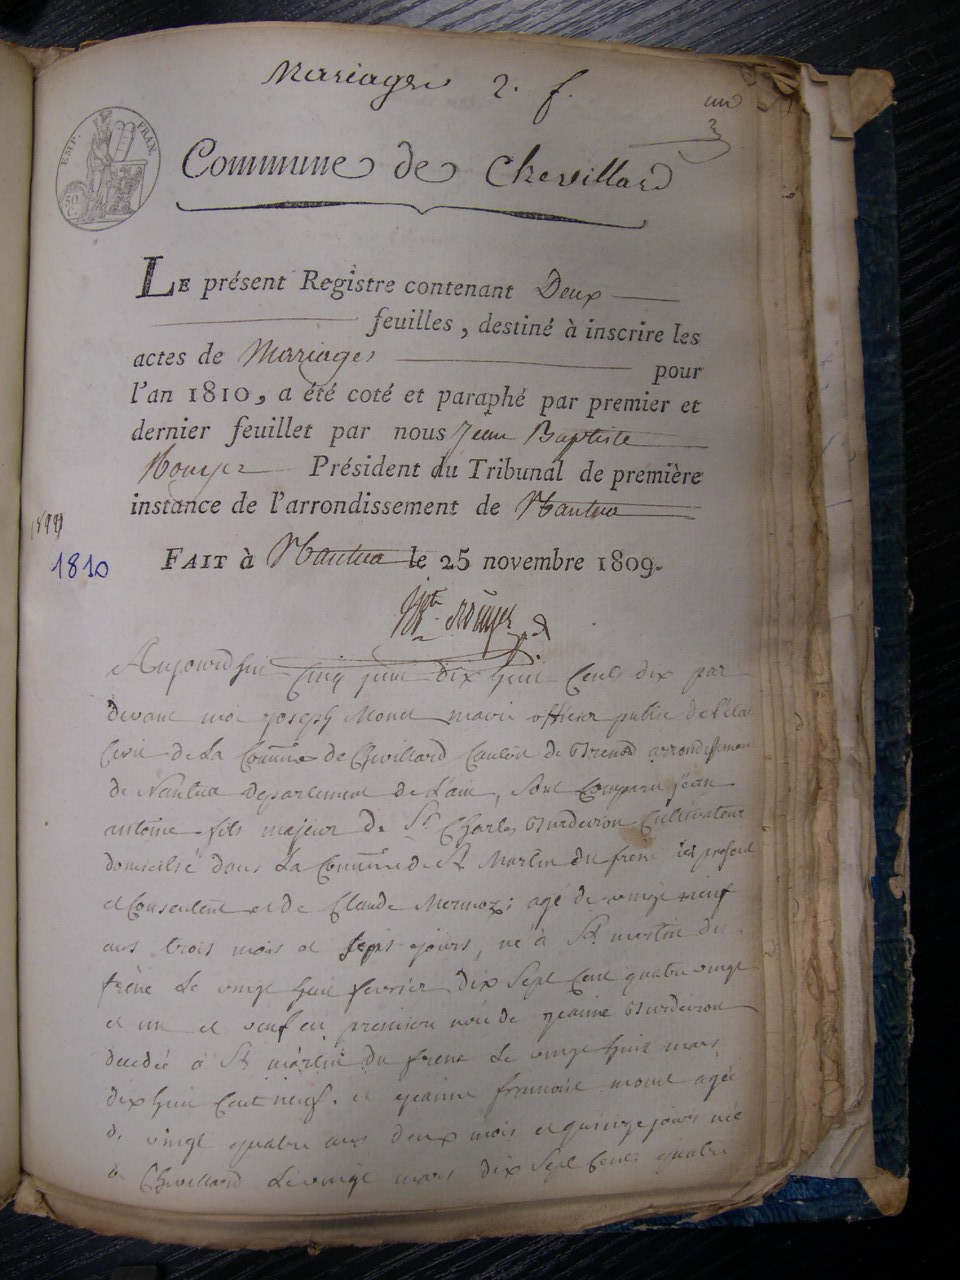 Mariages 2. f.
un
EMP. FRAN.
Commune de Chevillard
LE présent Registre contenant Deux
feuilles, destiné à inscrire les
actes de Mariages pour
l'an 1810, a été coté et paraphé par premier et
dernier feuillet par nous Jean Baptiste
Rouyer Président du Tribunal de première
instance de l'arrondissement de Nantua
1810
FAIT à Nantua le 25 novembre 1809.
Jn Bte Rouyer
Aujourdhui Cinq juin dix huit Cents dix par
devant moi joseph Monet maire officier public de l'état
Civil de La Commune de Chevillard Canton de Brenod arrondissement
de Nantua departement de L'ain, sont comparu jean
antoine fils majeur de Sr Charles Burdeiron Cultivateur
domicilié dans La Commune de St Martin du frene ici présent
et Consentent et de Claude Mermoz; agé de vingt neuf
ans trois mois et sept jours, né à St martin du
frène Le vingt huit fevrier dix Sept Cent quatre vingt
et un et veuf en premiere noce de jeanne Burdeiron
decedée à St martin du frene Le vingt huit mars
dix huit Cent neuf. et jeanne francoise monet agée
de vingt quatre ans deux mois et quinze jours née
a Chevillard Le vingt mars dix Sept Cents quatre